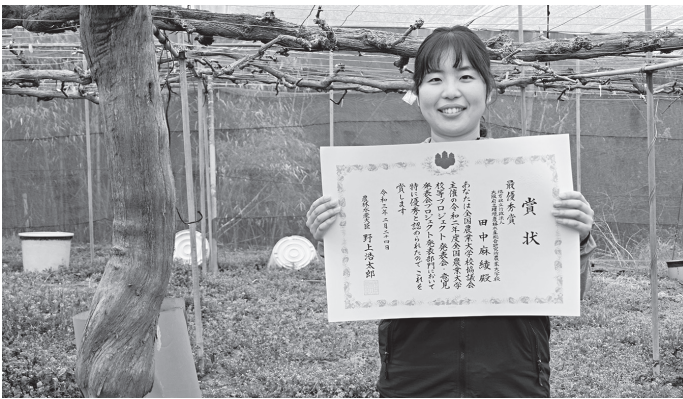 賞状
最優秀賞
田中麻綾殿
あなたは全国農業大学校協議会
主催の令和二年度全国農業大学
校等プロジェクト発表会・意見
発表会プロジェクト発表部門において
特に優秀と認められたのでこれを
賞します
令和三年二月二十四日
農林水産大臣 野上浩太郎